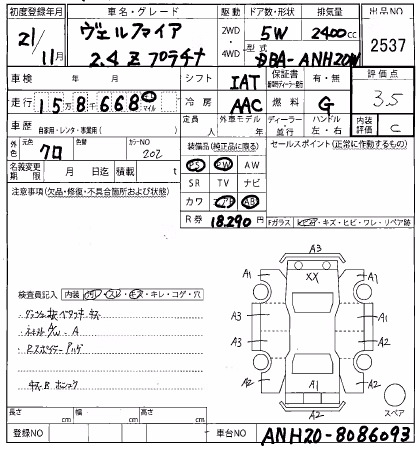 初度登録年月 車名・グレード 駆動 ドア数・形状 排気量 出品NO
21/11月 ヴェルファイア 2WD 5W 2400cc 2537
2.4 Z プラチナ 4WD 型式 DBA-ANH20W
車検 年 月 シフト IAT 保証書 有・無 評価点
走行 15万8668 キロ マイル 冷房 AAC 燃料 G 3.5
車歴 自家用・レンタ・事業用( ) 定員 人 外車モデル 年 ディーラー 並行 ハンドル 左・右 内装評価 C
外色 元色 クロ 色替 カラーNO 202 装備品(純正品に限る) セールスポイント(正常に作動するもの)
名義変更期限 月 日迄 積載 t PS PW AW
注意事項(欠品・修復・不具合箇所および状態) SR TV ナビ
カワ AB
R券 18,290円 Fガラス・キズ・ヒビ・ワレ・リペア跡
A3
A1 XX A1
A3 A3
A3 A3
A2 A1 A2
A2
スペア
検査員記入 内装 ・キレ・コゲ・穴
長さ cm 幅 cm 高さ cm
登録NO 車台NO ANH20-8086093